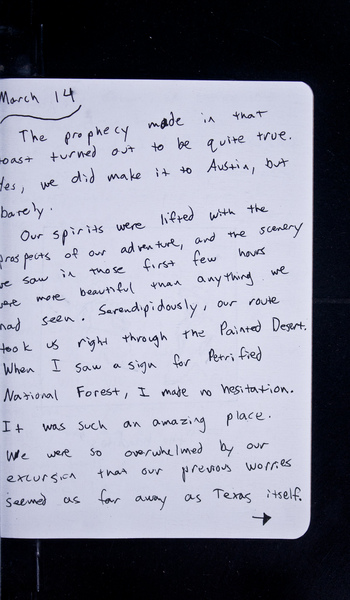 March 14
The prophecy made in that
toast turned out to be quite true.
Yes, we did make it to Austin, but
barely.
Our spirits were lifted with the
prospects of our adventure, and the scenery
we saw in those first few hours
were more beautiful than anything we
had seen. Serendipidously, our route
took us right through the Painted Desert.
When I saw a sign for Petrified
National Forest, I made no hesitation.
It was such an amazing place.
We were so overwhelmed by our
excursion that our previous worries
seemed as far away as Texas itself.